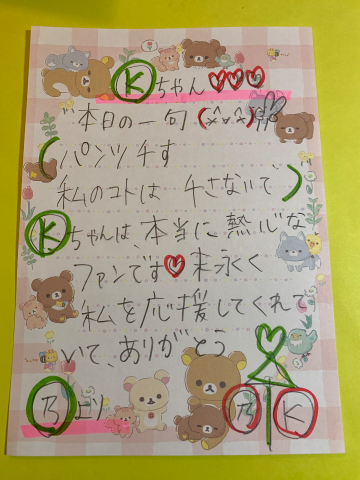 Kちゃん♡♡♡
本日の一句(^x^)
(パンツ 干す
私のコトは 干さないで)
Kちゃんは、本当に熱心な
ファンです♡末永く
私を応援してくれて
いて、ありがとう
乃より
乃 K